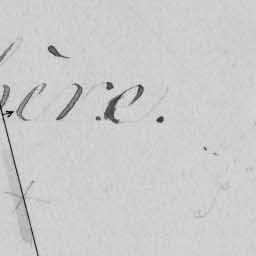 ère.